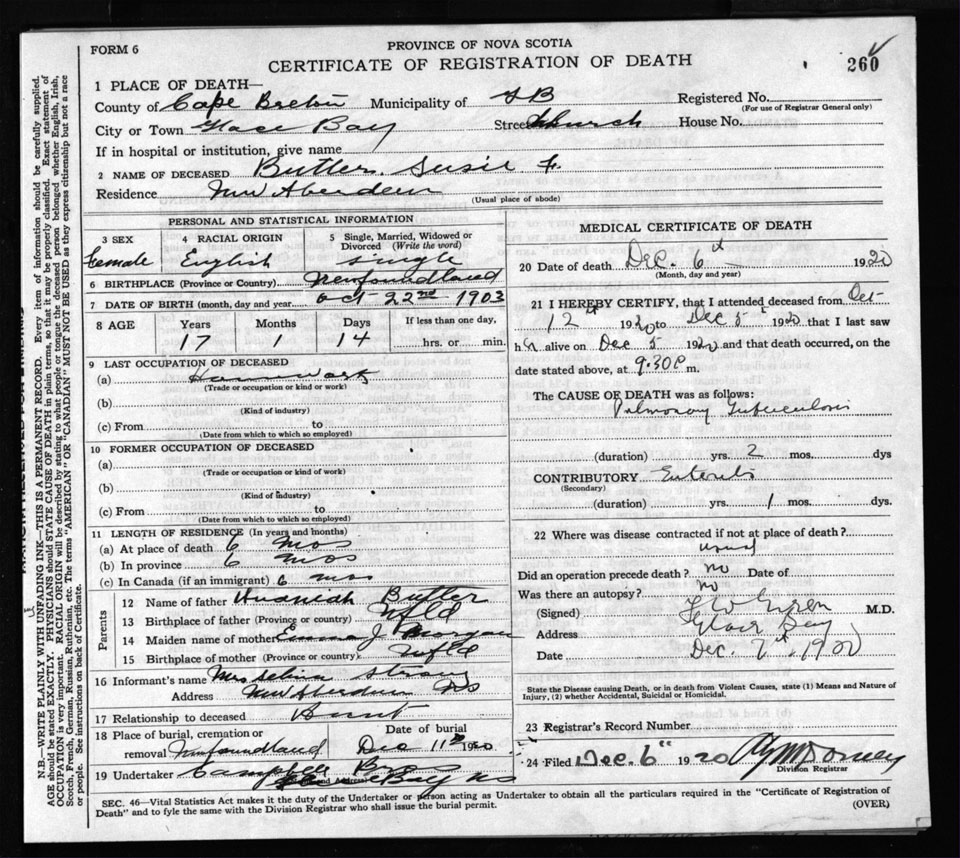 FORM 6
PROVINCE OF NOVA SCOTIA
CERTIFICATE OF REGISTRATION OF DEATH
260
1 PLACE OF DEATH—
County of Cape Breton Municipality of GB Registered No.
(For use of Registrar General only)
City or Town Glace Bay Street Church House No.
If in hospital or institution, give name
2 NAME OF DECEASED Butler, Susie F.
Residence New Aberdeen
(Usual place of abode)
PERSONAL AND STATISTICAL INFORMATION
3 SEX 4 RACIAL ORIGIN 5 Single, Married, Widowed or Divorced (Write the word)
Female English single
6 BIRTHPLACE (Province or Country) Newfoundland
7 DATE OF BIRTH (month, day and year) Oct 22nd 1903
8 AGE Years Months Days If less than one day,
17 1 14 hrs. or min.
9 LAST OCCUPATION OF DECEASED
(a) Housework
(Trade or occupation or kind or work)
(b)
(Kind of industry)
(c) From to
(Date from which to which so employed)
10 FORMER OCCUPATION OF DECEASED
(a)
(Trade or occupation or kind of work)
(b)
(Kind of industry)
(c) From to
(Date from which to which so employed)
11 LENGTH OF RESIDENCE (In years and months)
(a) At place of death 6 mos
(b) In province 6 mos
(c) In Canada (if an immigrant) 6 mos
Parents
12 Name of father Butler
13 Birthplace of father (Province or country) Nfld
14 Maiden name of mother Emma J Morgan
15 Birthplace of mother (Province or country) Nfld
16 Informant's name Mrs Selina Strong
Address New Aberdeen NS
17 Relationship to deceased Aunt
18 Place of burial, cremation or removal Newfoundland Date of burial Dec 11th 1920
19 Undertaker Campbell Bros
Bay NS
MEDICAL CERTIFICATE OF DEATH
20 Date of death Dec. 6th 1920
(Month, day and year)
21 I HEREBY CERTIFY, that I attended deceased from Oct
12th 1920 to Dec 5th 1920 that I last saw
her alive on Dec 5 1920 and that death occurred, on the
date stated above, at 9.30 P m.
The CAUSE OF DEATH was as follows:
Pulmonary Tuberculosis
(duration) yrs. 2 mos. dys
CONTRIBUTORY Enteritis
(Secondary)
(duration) yrs. 1 mos. dys.
22 Where was disease contracted if not at place of death?
Did an operation precede death? no Date of
Was there an autopsy? no
(Signed) M.D.
Address Glace Bay
Date Dec. 7th, 1920
State the Disease causing Death, or in death from Violent Causes, state (1) Means and Nature of
Injury, (2) whether Accidental, Suicidal or Homicidal.
23 Registrar's Record Number
24 Filed Dec. 6th 1920
Division Registrar
SEC. 46—Vital Statistics Act makes it the duty of the Undertaker or person acting as Undertaker to obtain all the particulars required in the "Certificate of Registration of
Death" and to fyle the same with the Division Registrar who shall issue the burial permit.
(OVER)
N.B.—WRITE PLAINLY WITH UNFADING INK—THIS IS A PERMANENT RECORD. Every item of information should be carefully supplied.
AGE should be stated EXACTLY. PHYSICIANS should STATE CAUSE OF DEATH in plain terms, so that it may be properly classified. Exact statement of
OCCUPATION is very important. RACIAL ORIGIN will be described by stating to what people or tongue the deceased person belonged whether English, Irish,
Scotch, French, German, Russian, Ruthenian, etc. The terms "AMERICAN" OR "CANADIAN" MUST NOT BE USED as they express citizenship but not a race
or people. See instructions on back of Certificate.